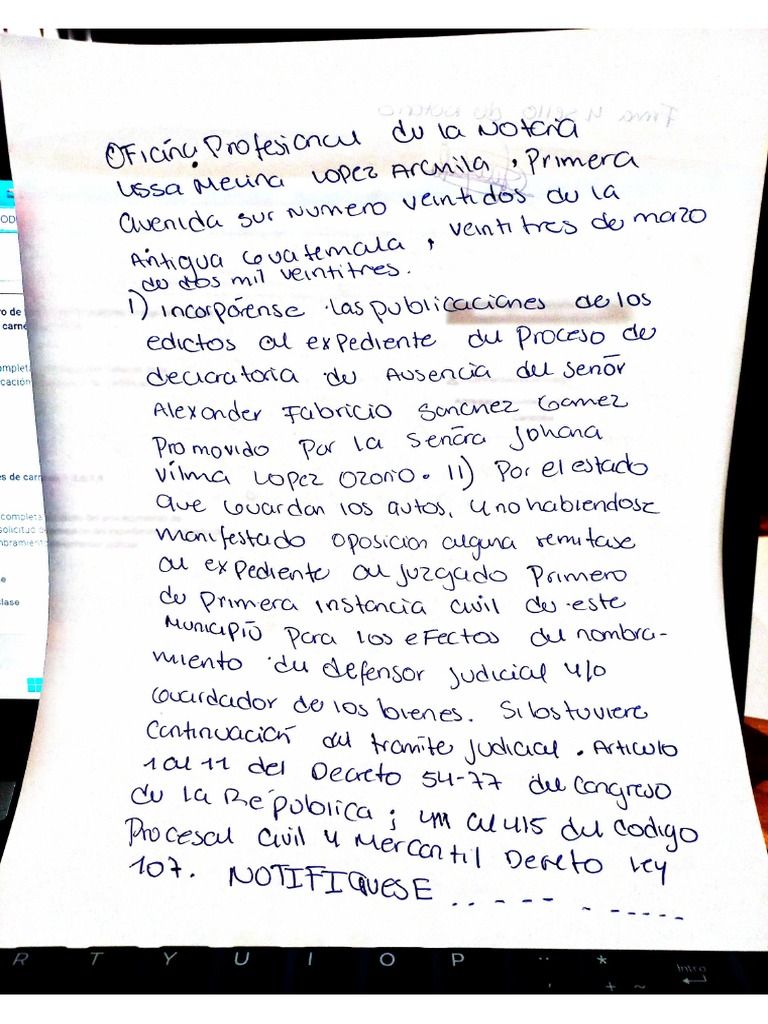 Oficina Profesional de la Notaria
Lissa Melina Lopez Archila, Primera
avenida sur numero veintidos de la
Antigua Guatemala, veintitres de marzo
de dos mil veintitres.
I) incorpórense las publicaciones de los
edictos al expediente del Proceso de
declaratoria de Ausencia del señor
Alexander Fabricio Sanchez Gamez
Promovido por la Señora Johana
Vilma Lopez Ozorio. II) Por el estado
que Guardan los autos, y no habiendose
manifestado oposicion alguna remitase
al expediente al juzgado Primero
de primera instancia civil de este
Municipio para los efectos del nombra-
miento de defensor judicial y/o
Guardador de los bienes. Si los tuviere
Continuación del tramite judicial. Articulo
1 al 11 del Decreto 54-77 del Congreso
de la República; 411 al 415 del codigo
Procesal Civil y Mercantil Decreto Ley
107. NOTIFIQUESE .. - - - - - - - - -
R T Y U I O P
Intro